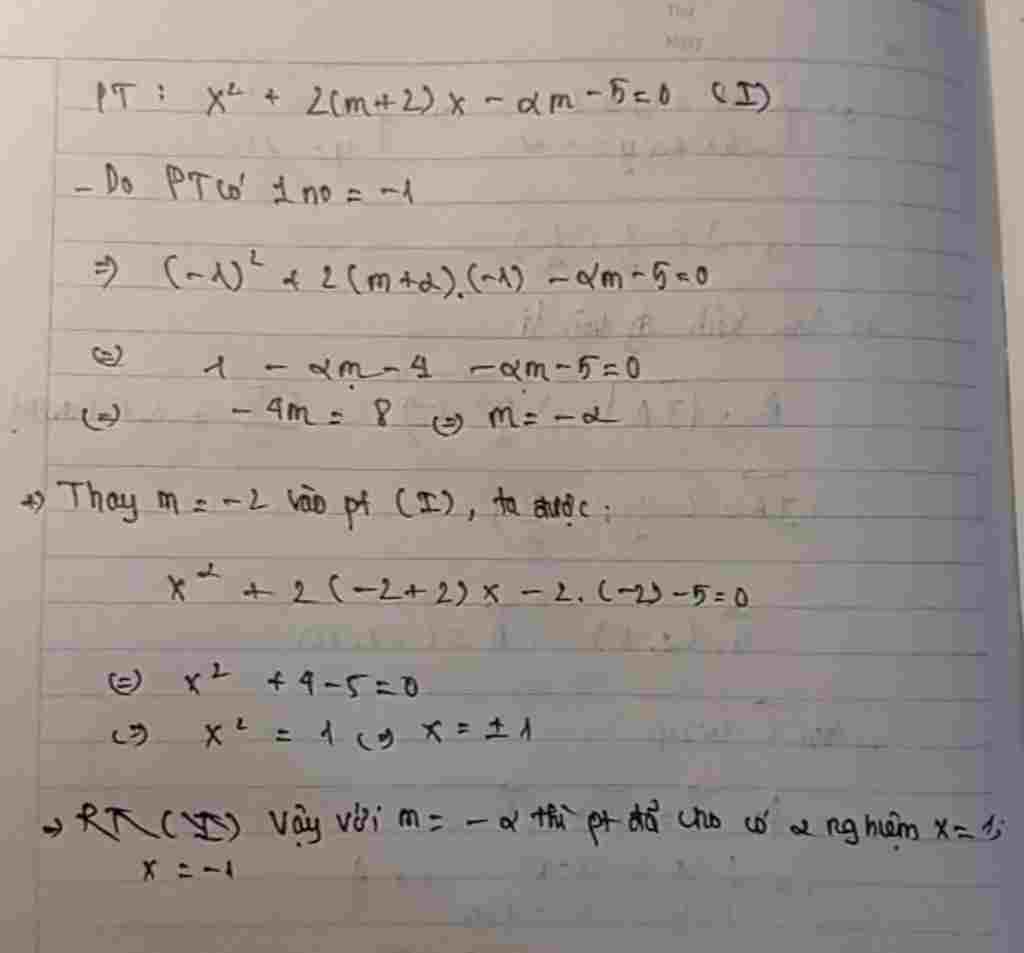 Thứ
Ngày
PT : x² + 2(m+2) x - 2m - 5 = 0 (I)
- Do PT có 1 no = -1
=> (-1)² + 2 (m+2).(-1) - 2m - 5 = 0
(=) 1 - 2m - 4 - 2m - 5 = 0
(=) - 4m = 8 (=) m = -2
=> Thay m = -2 vào pt (I), ta được :
x² + 2 (-2+2) x - 2. (-2) - 5 = 0
(=) x² + 4 - 5 = 0
(=) x² = 1 (=) x = ± 1
=> Vậy với m = -2 thì pt đã cho có 2 nghiệm x = 1;
x = -1